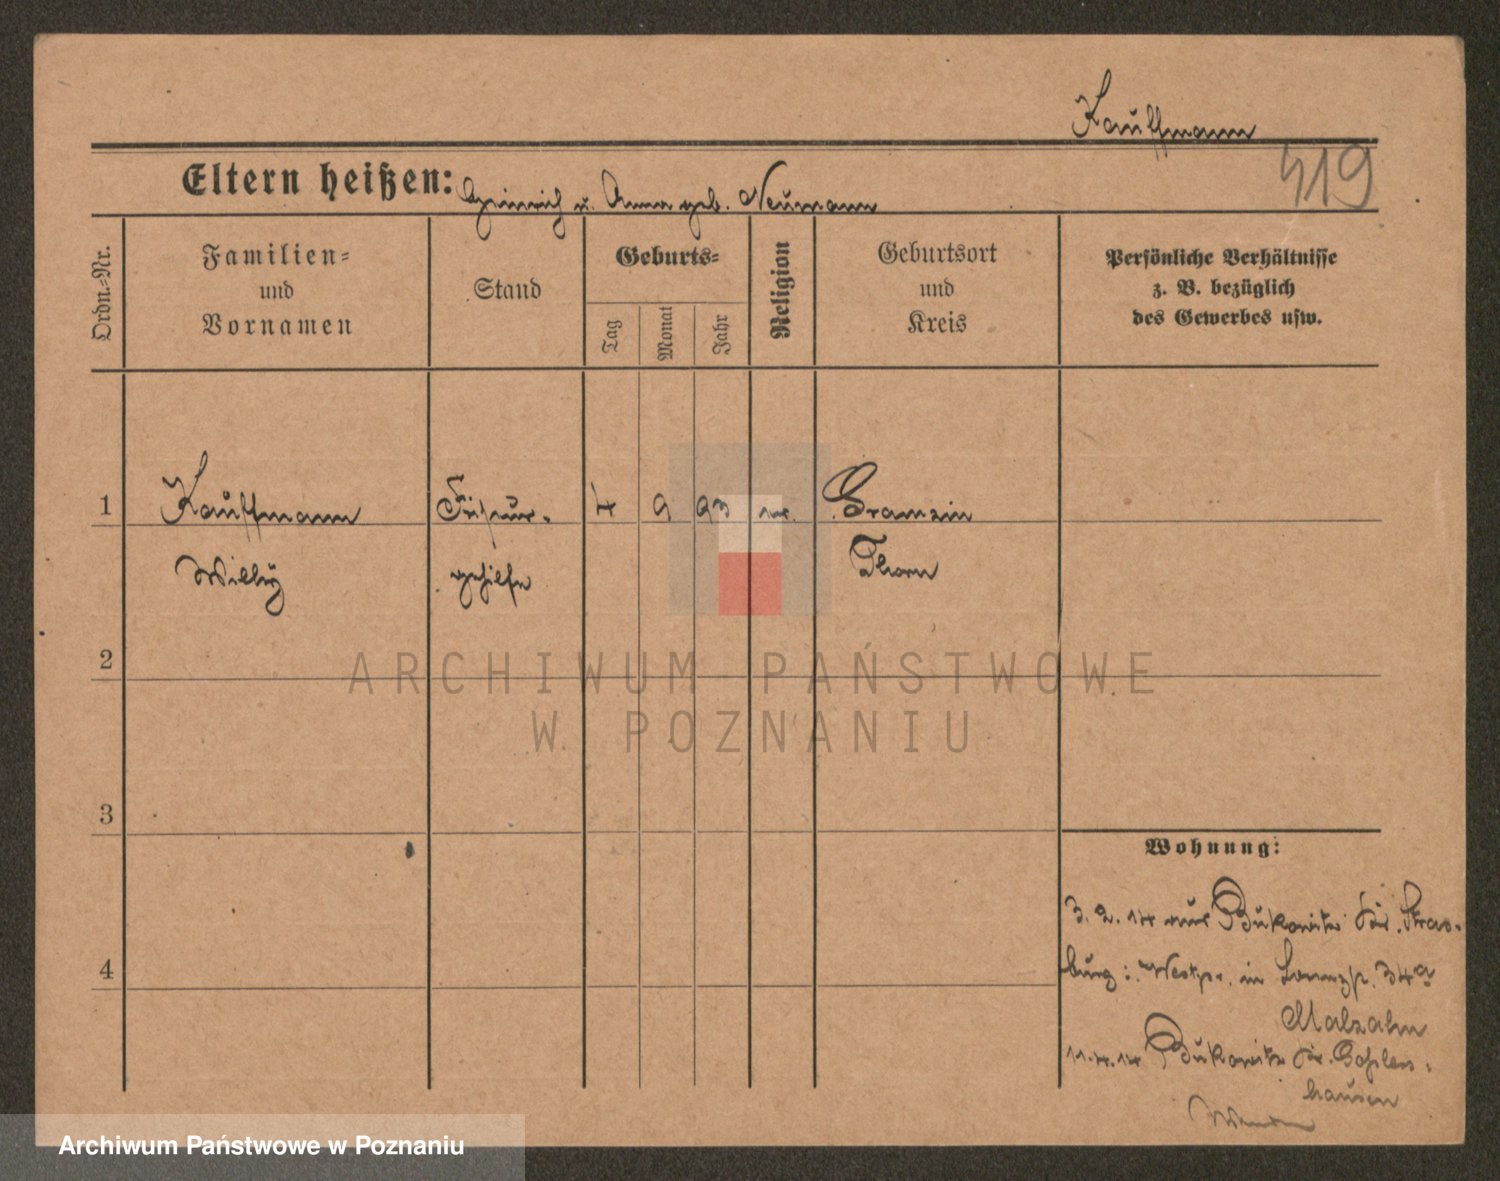 Kauffmann
419
Eltern heißen: Heinrich u. Anna geb. Neumann
Ordn.-Nr.
Familien-
und
Vornamen
Stand
Geburts-
Tag
Monat
Jahr
Religion
Geburtsort
und
Kreis
Persönliche Verhältnisse
z. B. bezüglich
des Gewerbes usw.
1 Kauffmann Friseur- 4 9 93 Gramzin
Willy gehilfe Thorn
2
3
4
Wohnung:
3. 2. 14 aus Bukowitz Kr. Stras-
burg i. Westpr. in 34a
Malzahn
11.4.14 Bukowitz Kr. Goßlers-
hausen
Wenden
ARCHIWUM PAŃSTWOWE
W POZNANIU
Archiwum Państwowe w Poznaniu